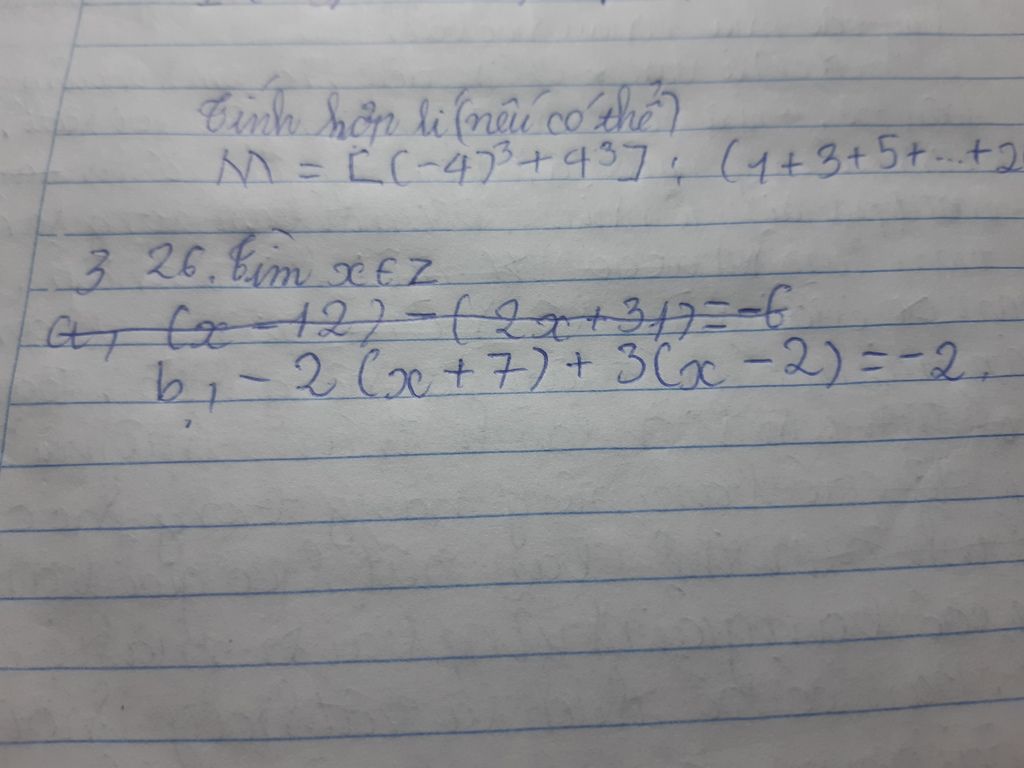 Tính hợp lí (nếu có thể)
M = [(-4)³ + 4³] : (1+3+5+...+2
3 26. Tìm x ∈ Z
a, (x - 12) - (2x + 31) = -6
b, - 2 (x + 7) + 3(x - 2) = -2.